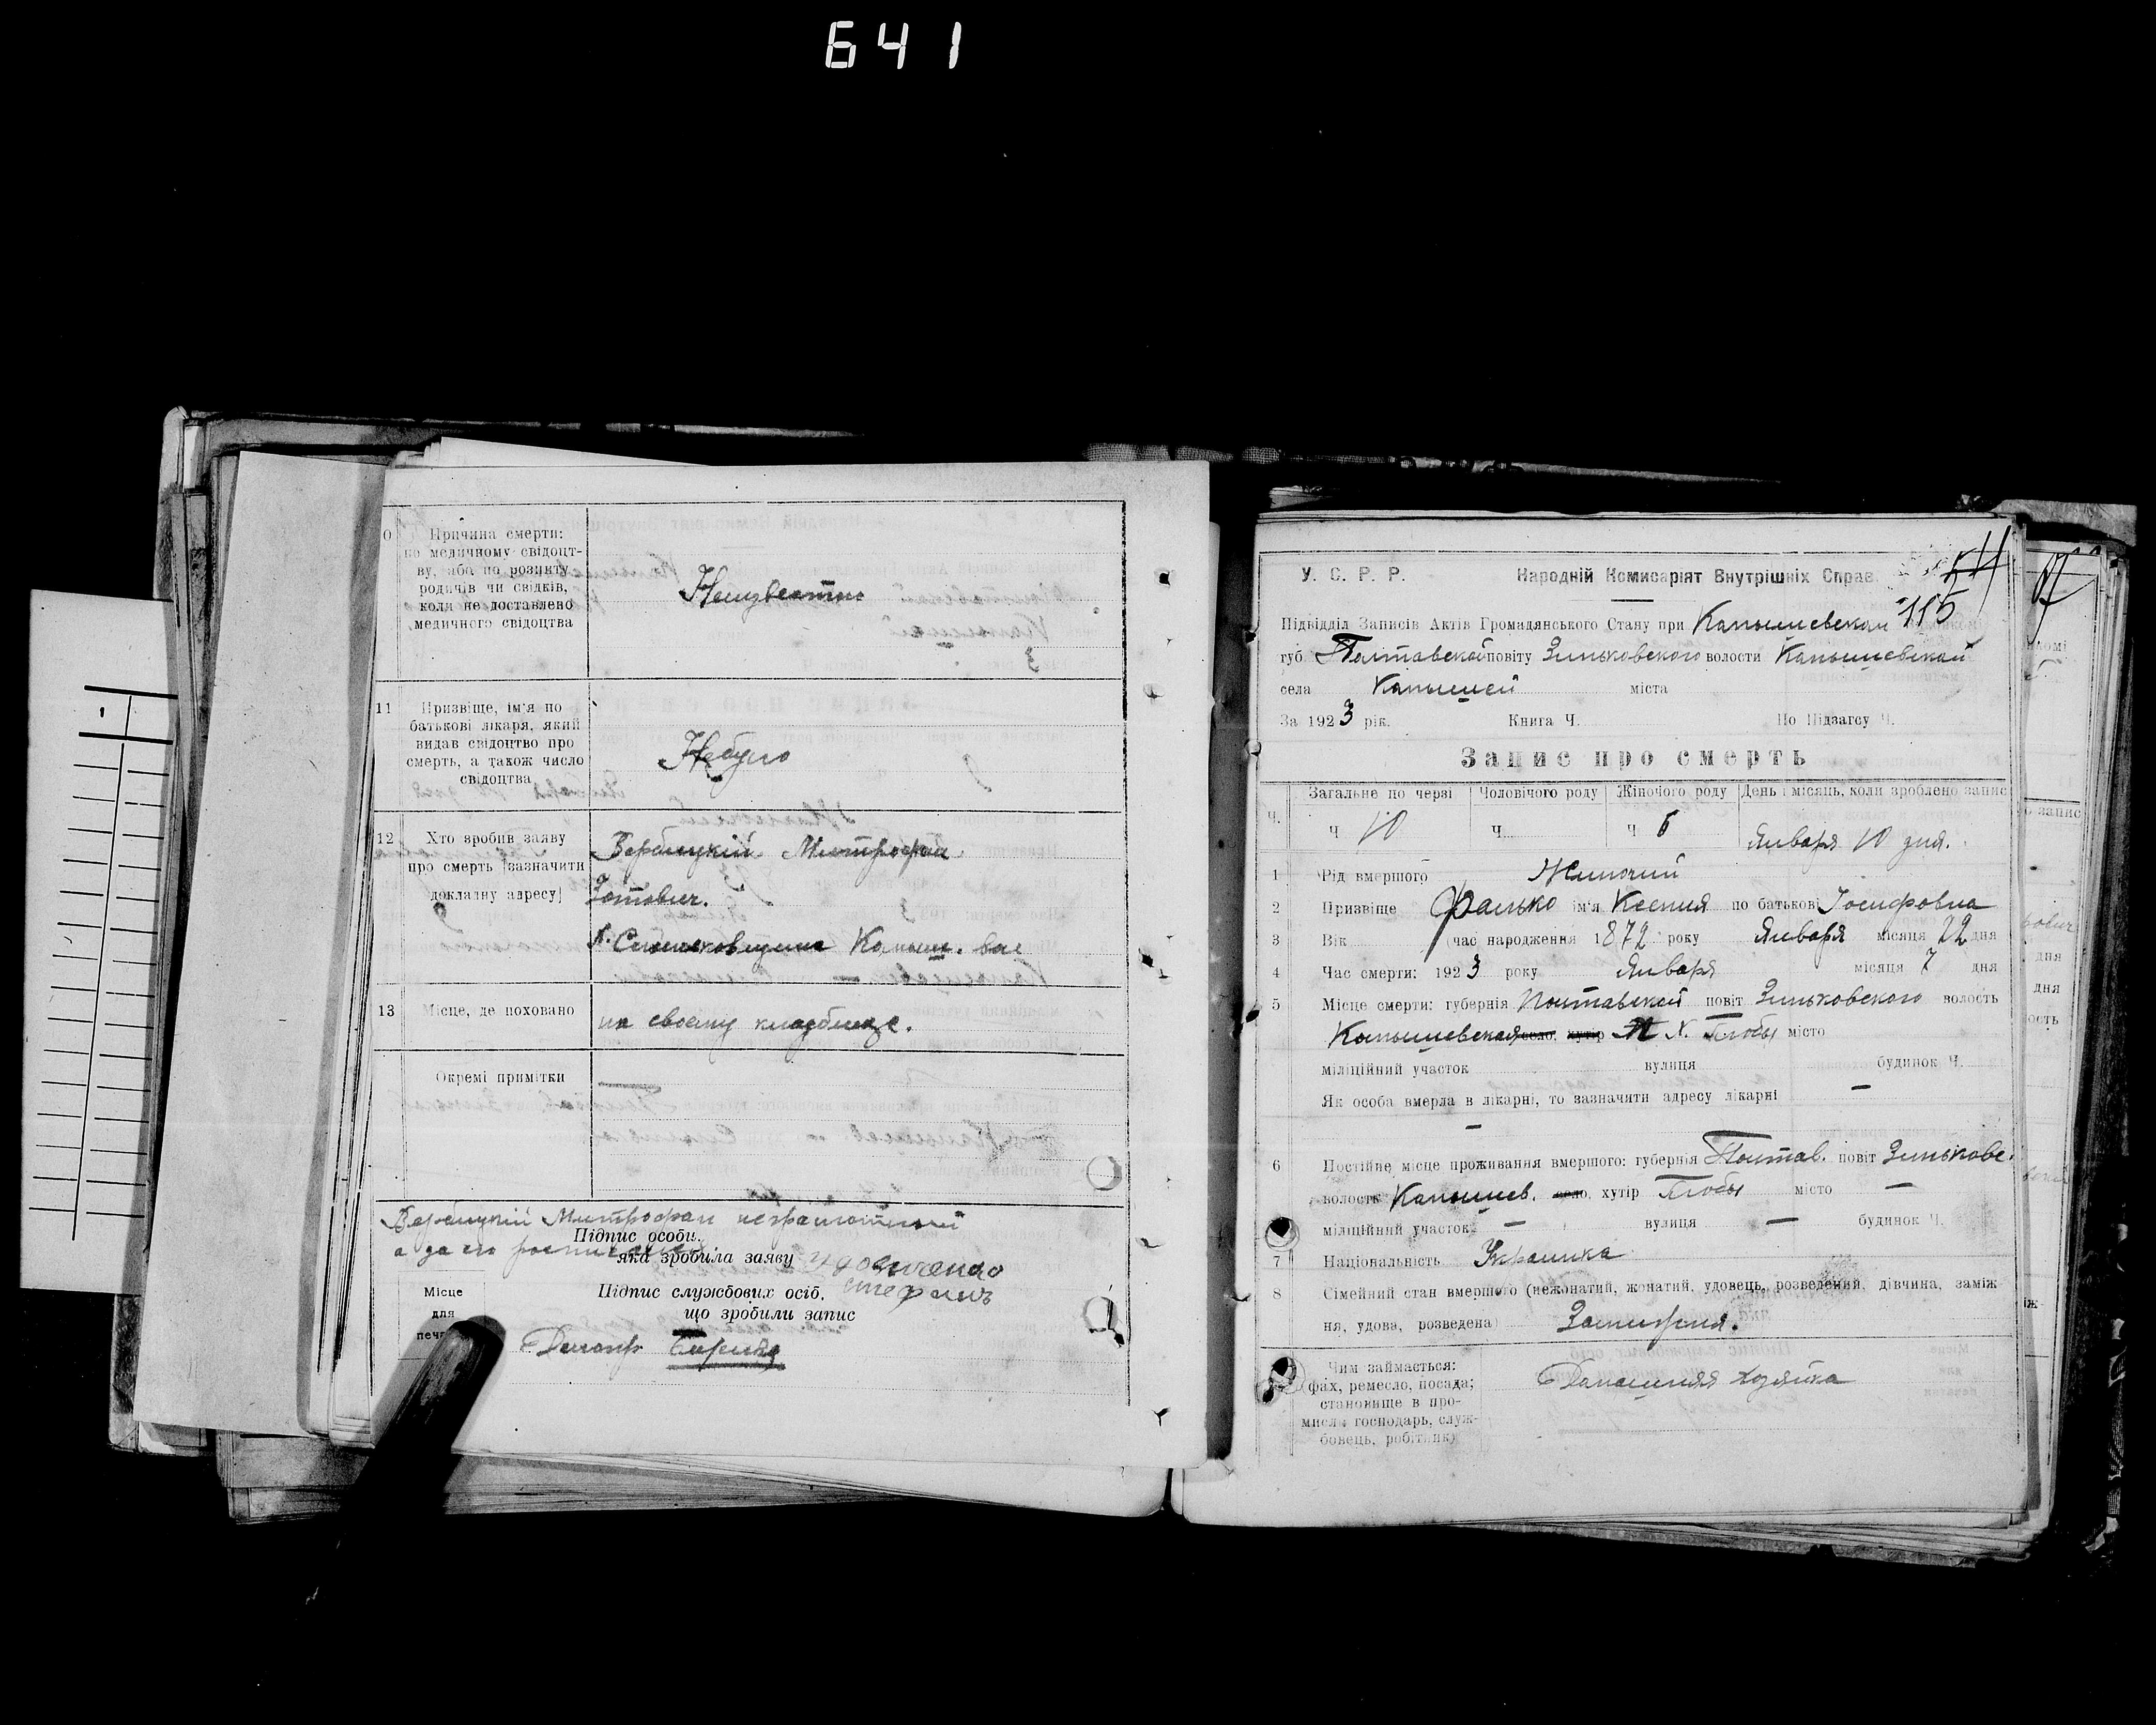 641
10 Причина смерти:
по медичному свідоцт-
ву, або по розпиту
родичів чи свідків,
коли не доставлено
медичного свідоцтва
Неизвестно
11 Призвіще, ім'я по
батькові лікаря, який
видав свідоцтво про
смерть, а також число
свідоцтва
Небуло
12 Хто зробив заяву
про смерть (зазначити
докладну адресу)
Вербицкий Митрофан
Зотович.
Камыш. вол
13 Місце, де поховано
на своему кладбище.
Окремі примітки
Вербицкий Митрофан неграмотный
Підпис особи,
а за его
яка зробила заяву
Підпис службових осіб,
що зробили запис
Місце
для
печ
У. С. Р. Р. Народній Комисаріят Внутрішніх Справ
115
Підвідділ Записів Актів Громадянського Стану при
губ. Полтавской повіту Зиньковского волости
села міста
За 1923 рік. Книга Ч. По Підзагсу Ч.
Запис про смерть
Ч. Загальне по черзі Чоловічого роду Жіночого роду День і місяць, коли зроблено запис
ч 10 ч ч 6 Января 10 дня.
1 Рід вмершого Жиночий
2 Призвіще Фалько ім'я Ксения по батькові Іосифовна
3 Вік (час народження 1872 року Января місяця 22 дня
4 Час смерти: 1923 року Января місяця 7 дня
5 Місце смерти: губернія Полтавской повіт Зиньковского волость
село, хутір Х. Глобы місто
міліційний участок вулиця будинок Ч.
Як особа вмерла в лікарні, то зазначити адресу лікарні —
—
6 Постійне місце проживання вмершого: губернія Полтав. повіт Зиньковс.
волость село, хутір Глобы місто —
міліційний участок — вулиця — будинок Ч.
7 Національність Украинка
8 Сімейний стан вмершого (нежонатий, жонатий, удовець, розведений, дівчина, заміж-
ня, удова, розведена)
Чим займається:
фах, ремесло, посада;
становище в про-
мислі: господарь, служ-
бовець, робітник)
Домашняя хозяйка